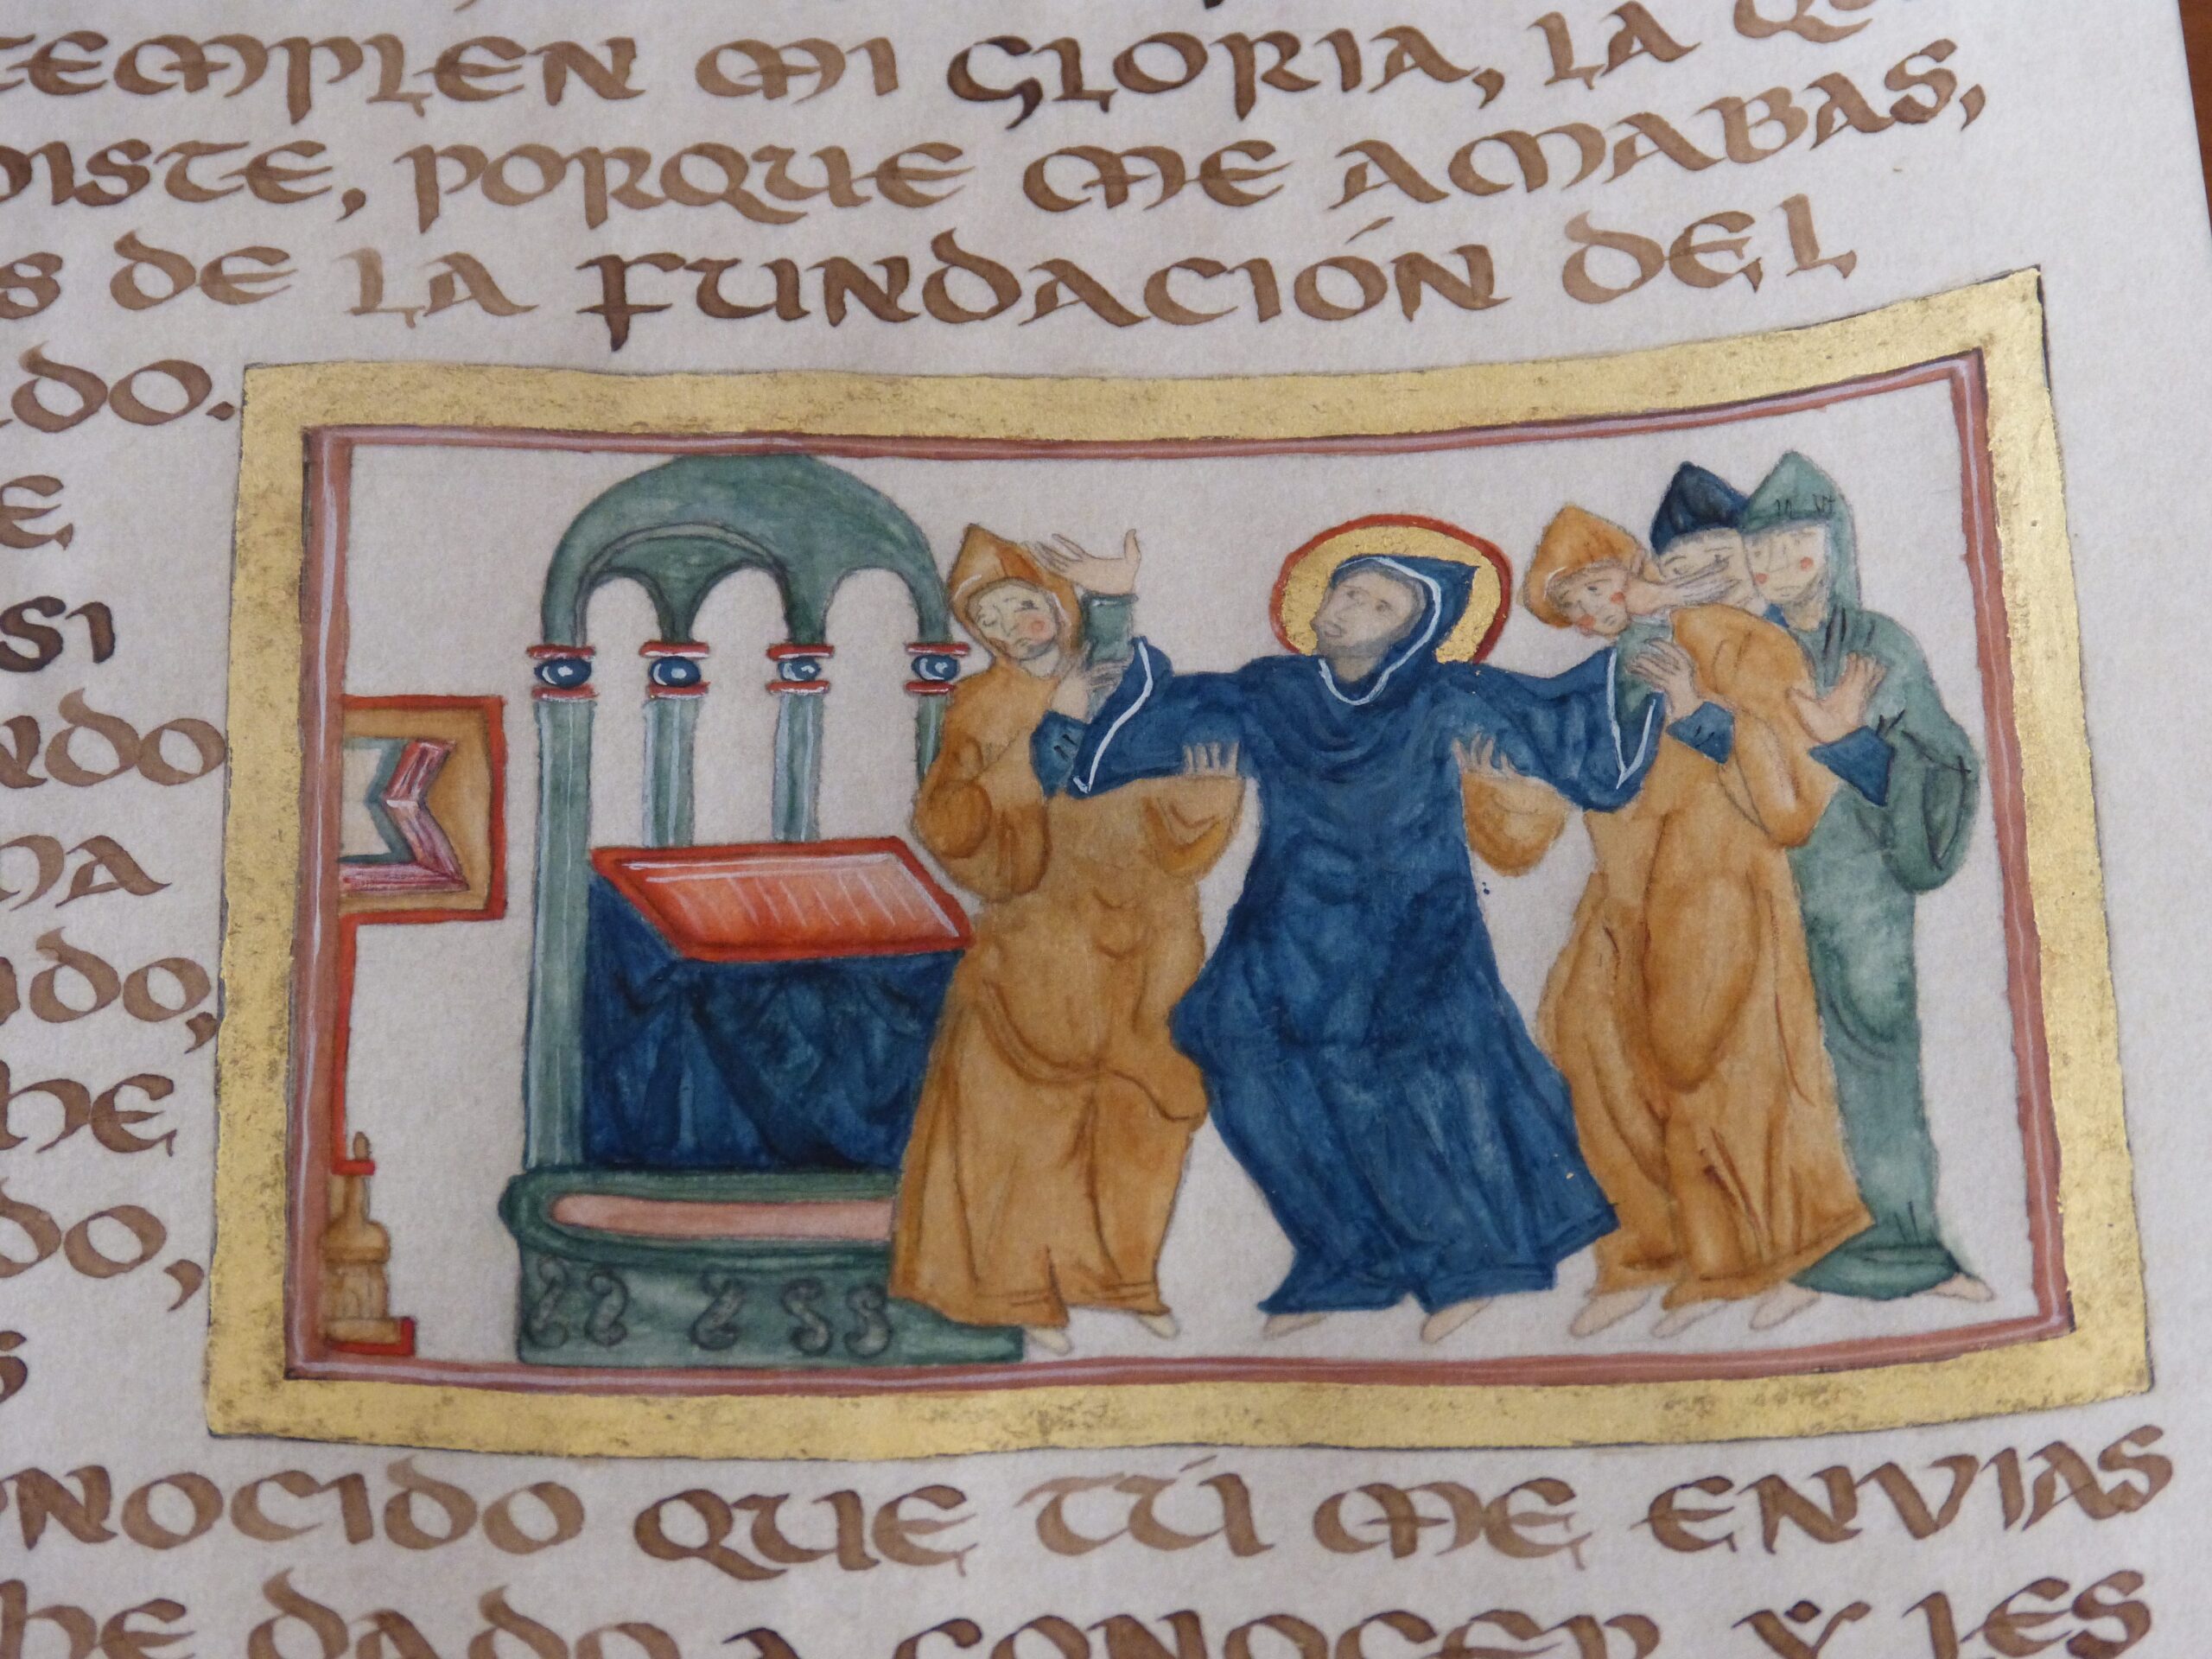 TEMPLÉN MI GLORIA, LA Q
DISTE, PORQUE ME AMABAS,
S DE LA FUNDACIÓN DEL
DO.
E
SI
DO
A
DO,
HE
DO,
S
NOCIDO QUE TÚ ME ENVIAS
HE DADO A CONOCER Y LES